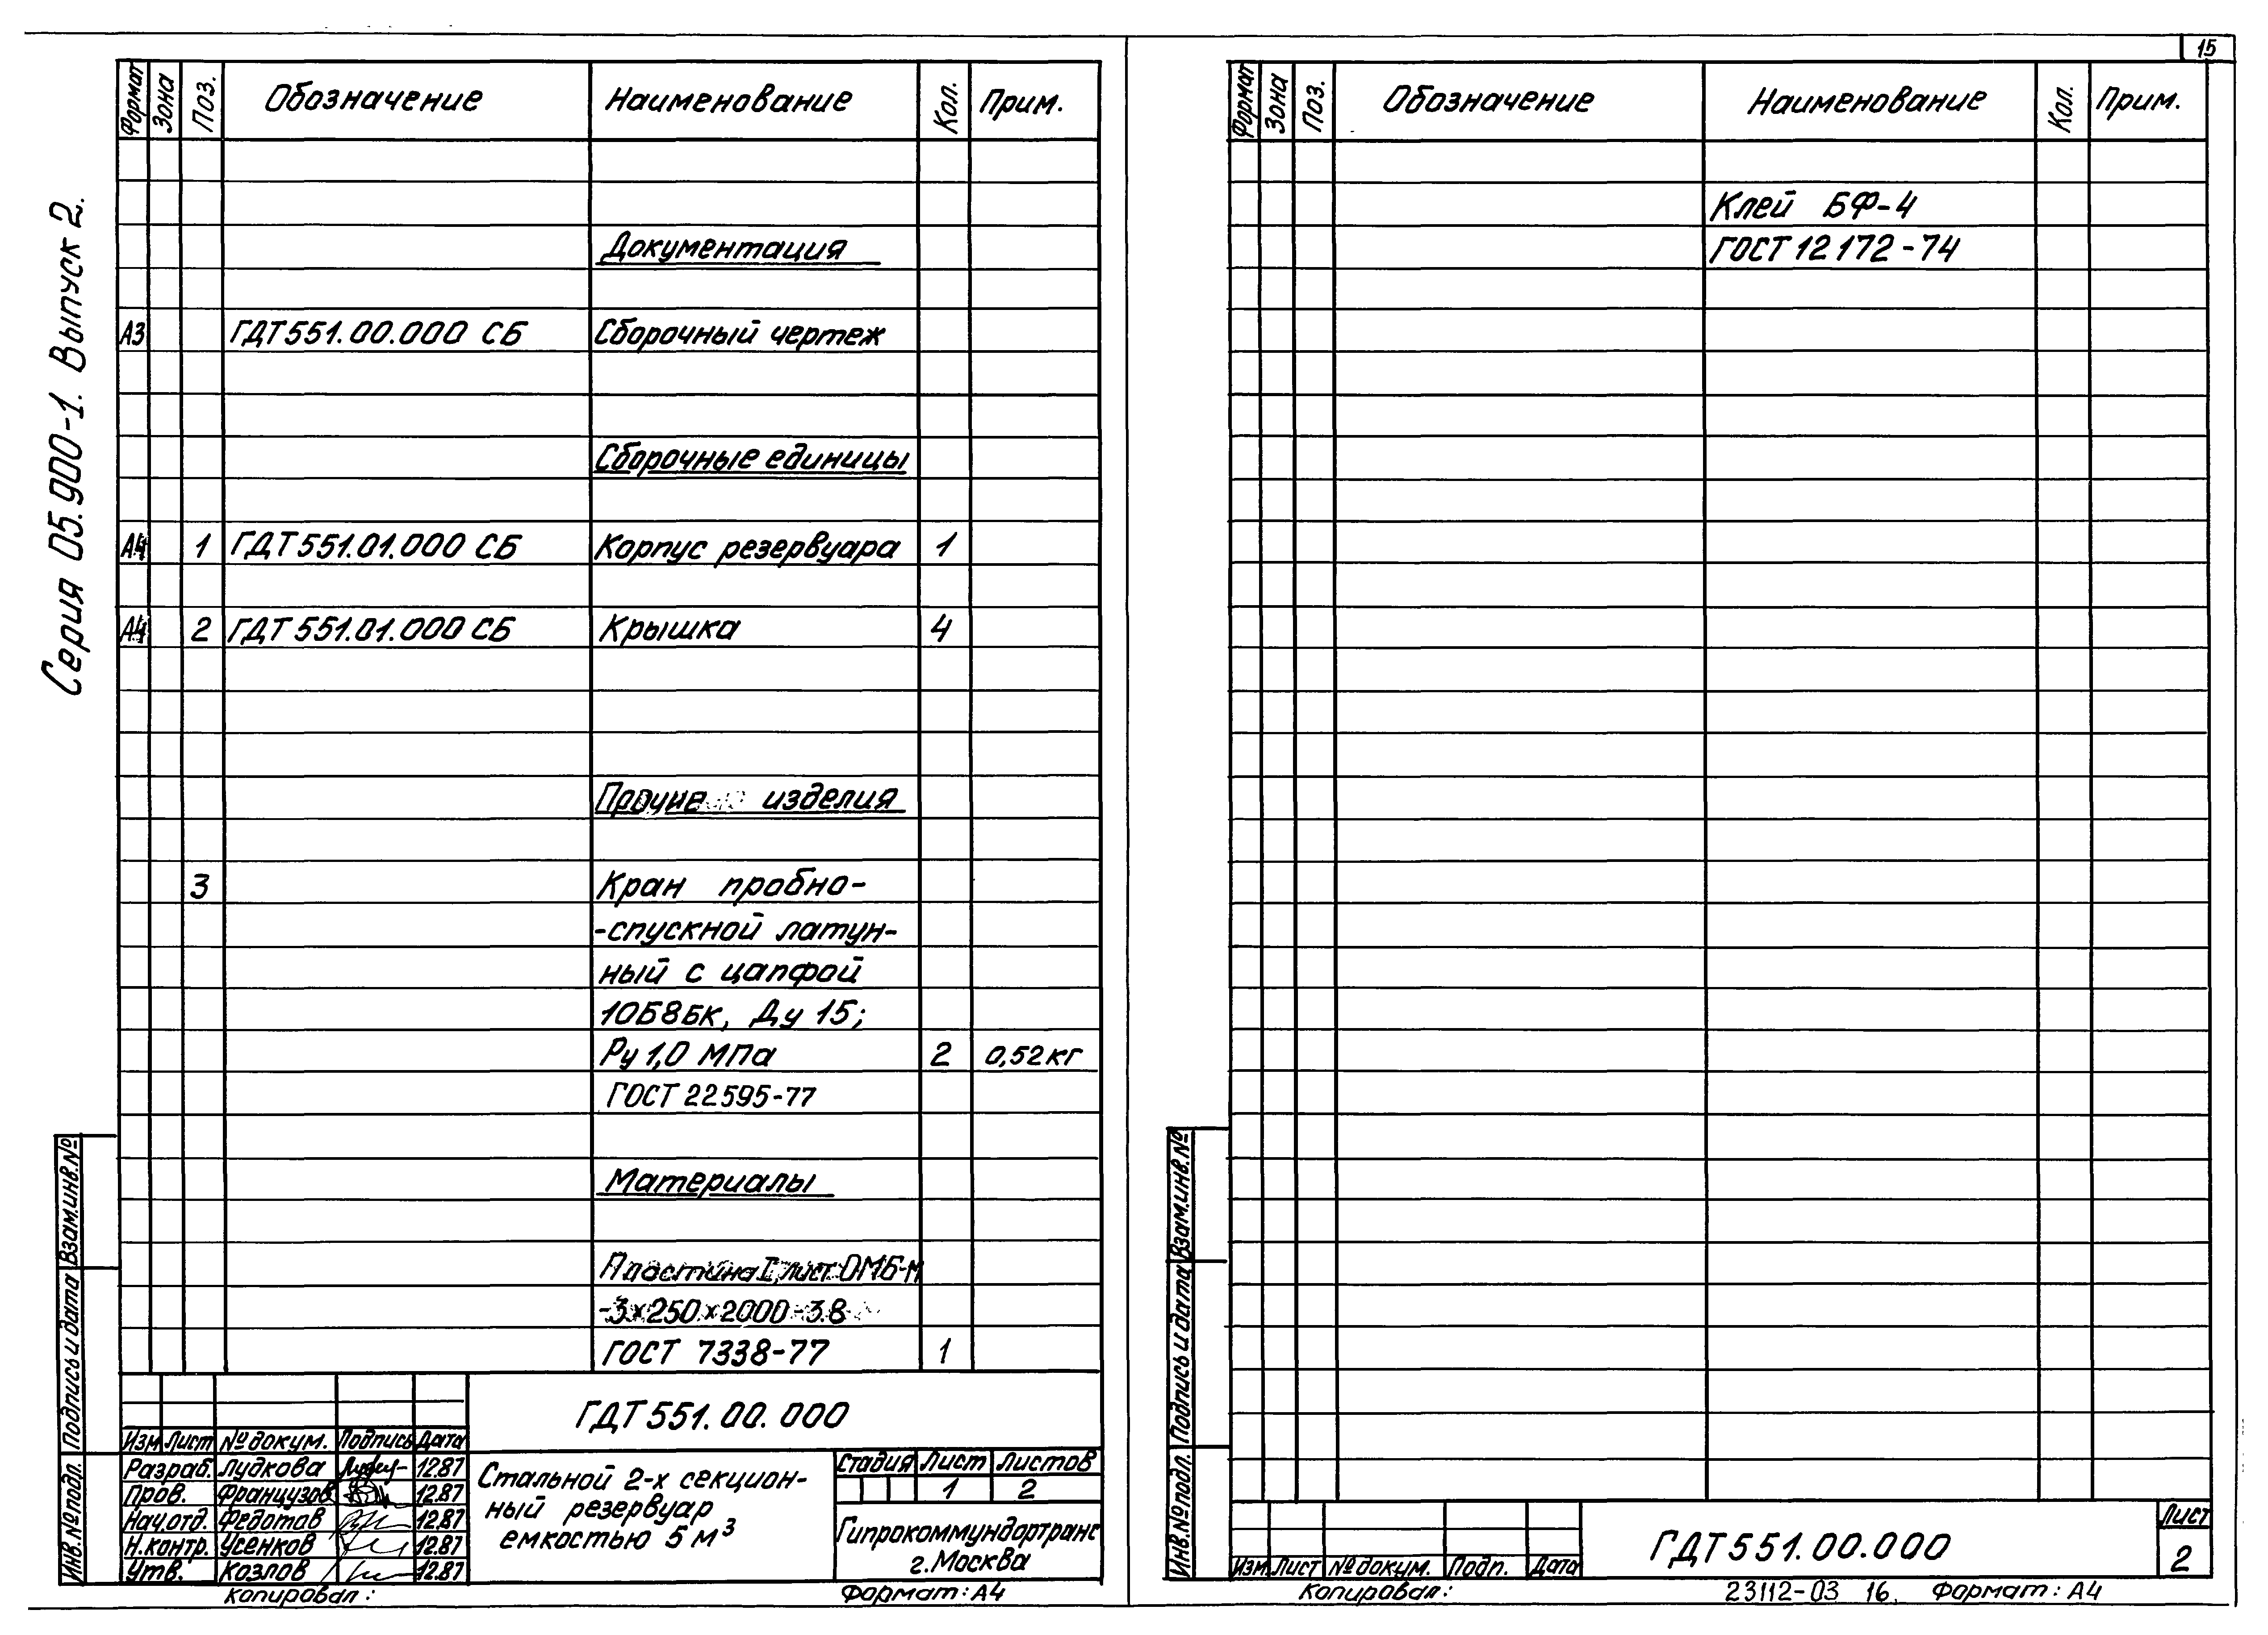 15
Серия 05.900-1. Выпуск 2.
Формат Зона Поз. Обозначение Наименование Кол. Прим.
Документация
А3 ГДТ551.00.000 СБ Сборочный чертеж
Сборочные единицы
А4 1 ГДТ551.01.000 СБ Корпус резервуара 1
А4 2 ГДТ551.01.000 СБ Крышка 4
Прочие изделия
3 Кран пробно-
-спускной латун-
ный с цапфой
10Б8БК, Ду 15;
Ру 1,0 МПа 2 0,52кг
ГОСТ 22595-77
Материалы
Пластина I, лист ОМБ-М
-3х250х2000-3.8
ГОСТ 7338-77 1
Взам.инв.№
Подпись и дата
Инв.№подл.
ГДТ551.00.000
Изм Лист №докум. Подпись Дата
Разраб. Лудкова 12.87
Пров. Французов 12.87
Нач.отд. Федотов 12.87
Н.контр. Усенков 12.87
Утв. Козлов 12.87
Стальной 2-х секцион-
ный резервуар
емкостью 5 м³
Стадия Лист Листов
1 2
Гипрокоммундортранс
г.Москва
Копировал: Формат: А4
Формат Зона Поз. Обозначение Наименование Кол. Прим.
Клей БФ-4
ГОСТ 12172-74
Взам.инв.№
Подпись и дата
Инв.№подл.
Изм. Лист №докум. Подп. Дата
ГДТ551.00.000
Лист
2
Копировал: 23112-03 16. Формат: А4